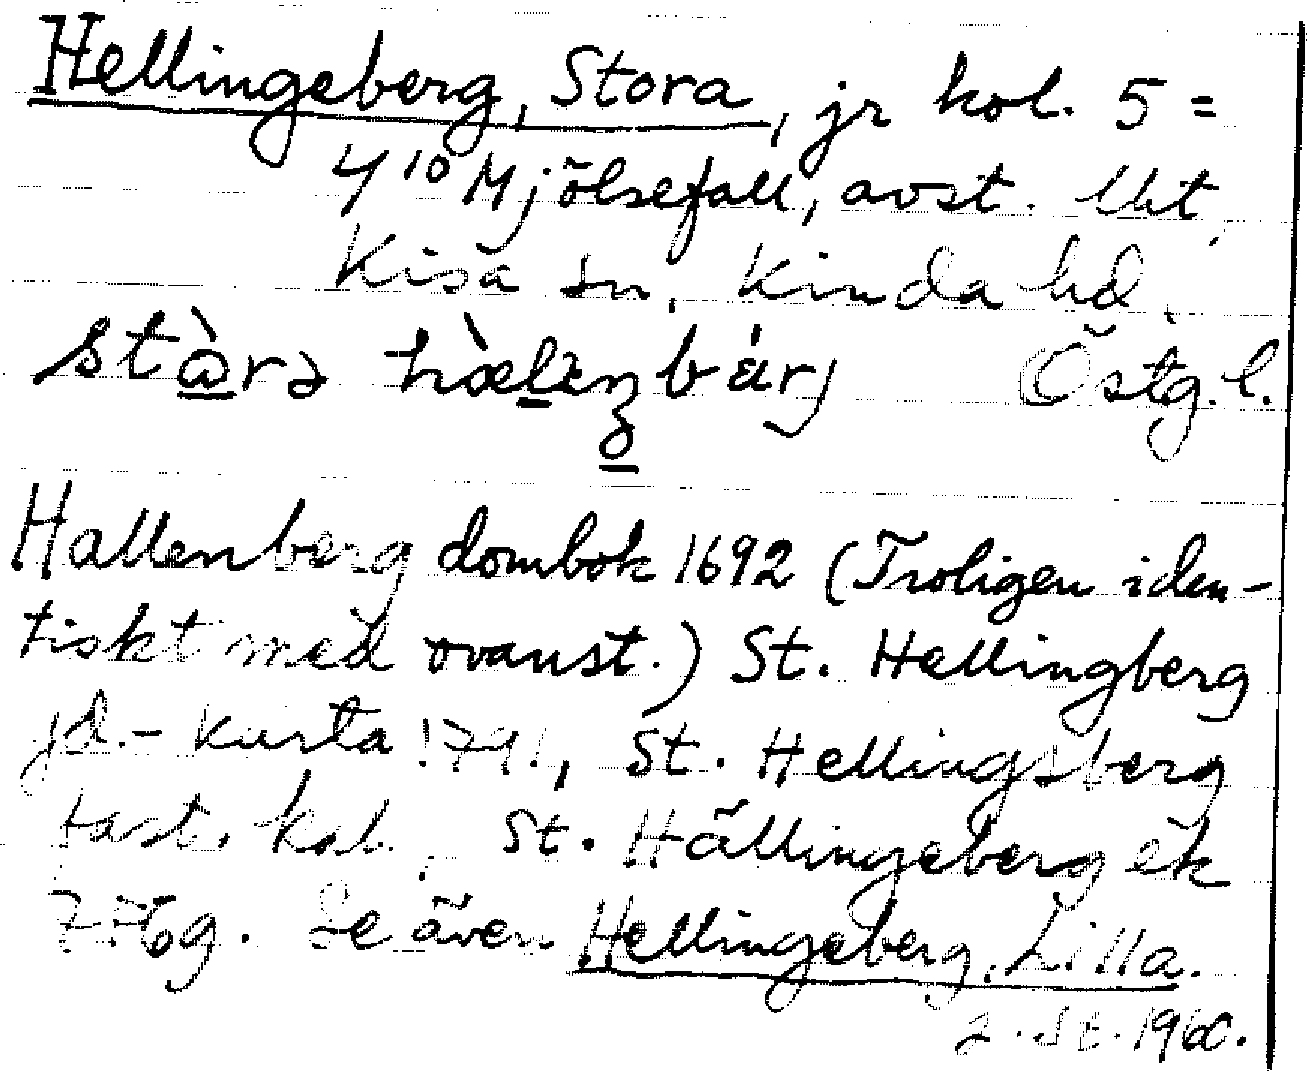 Hellingeberg, Stora, jr kol. 5 =
4 10 Mjölsefall, avst. Utt,
Kisa sn, Kinda hd,
stɑ̀rə hæ̀lɪŋbárj Östg. l.
Hallenberg dombok 1692 (Troligen iden-
tiskt med ovanst.) St. Hellingberg
jd.-karta 1791, St. Hellingsberg
fast. kal., St. Hällingeberg ek
7 F 6g. Se även Hellingeberg, Lilla.
1960.